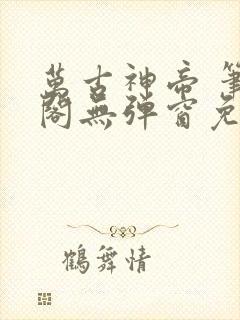 萬古神帝 筆
閣無彈窗免
鶴舞情